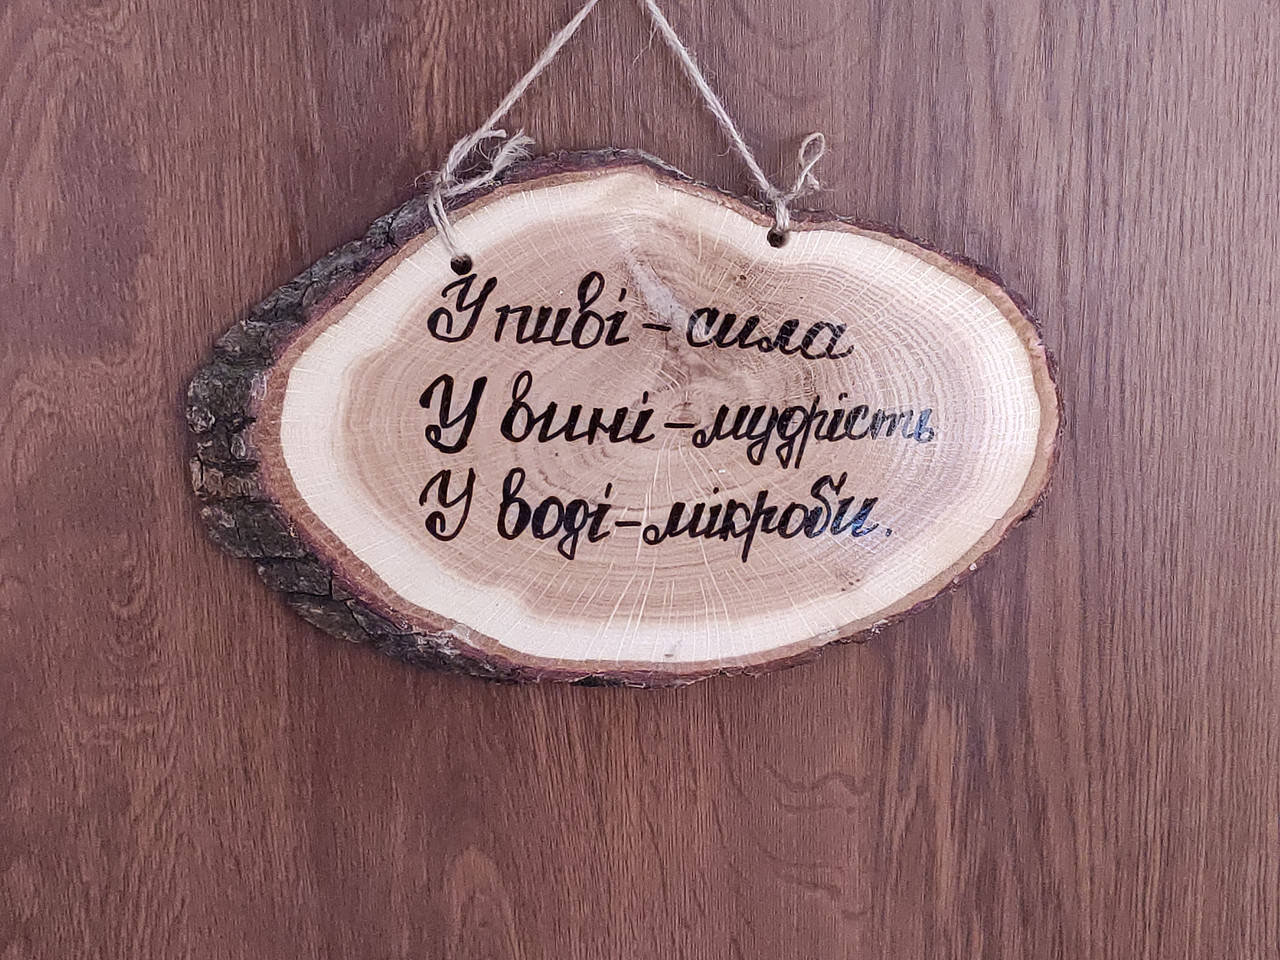 У пиві - сила
У вині - мудрість
У воді - мікроби.